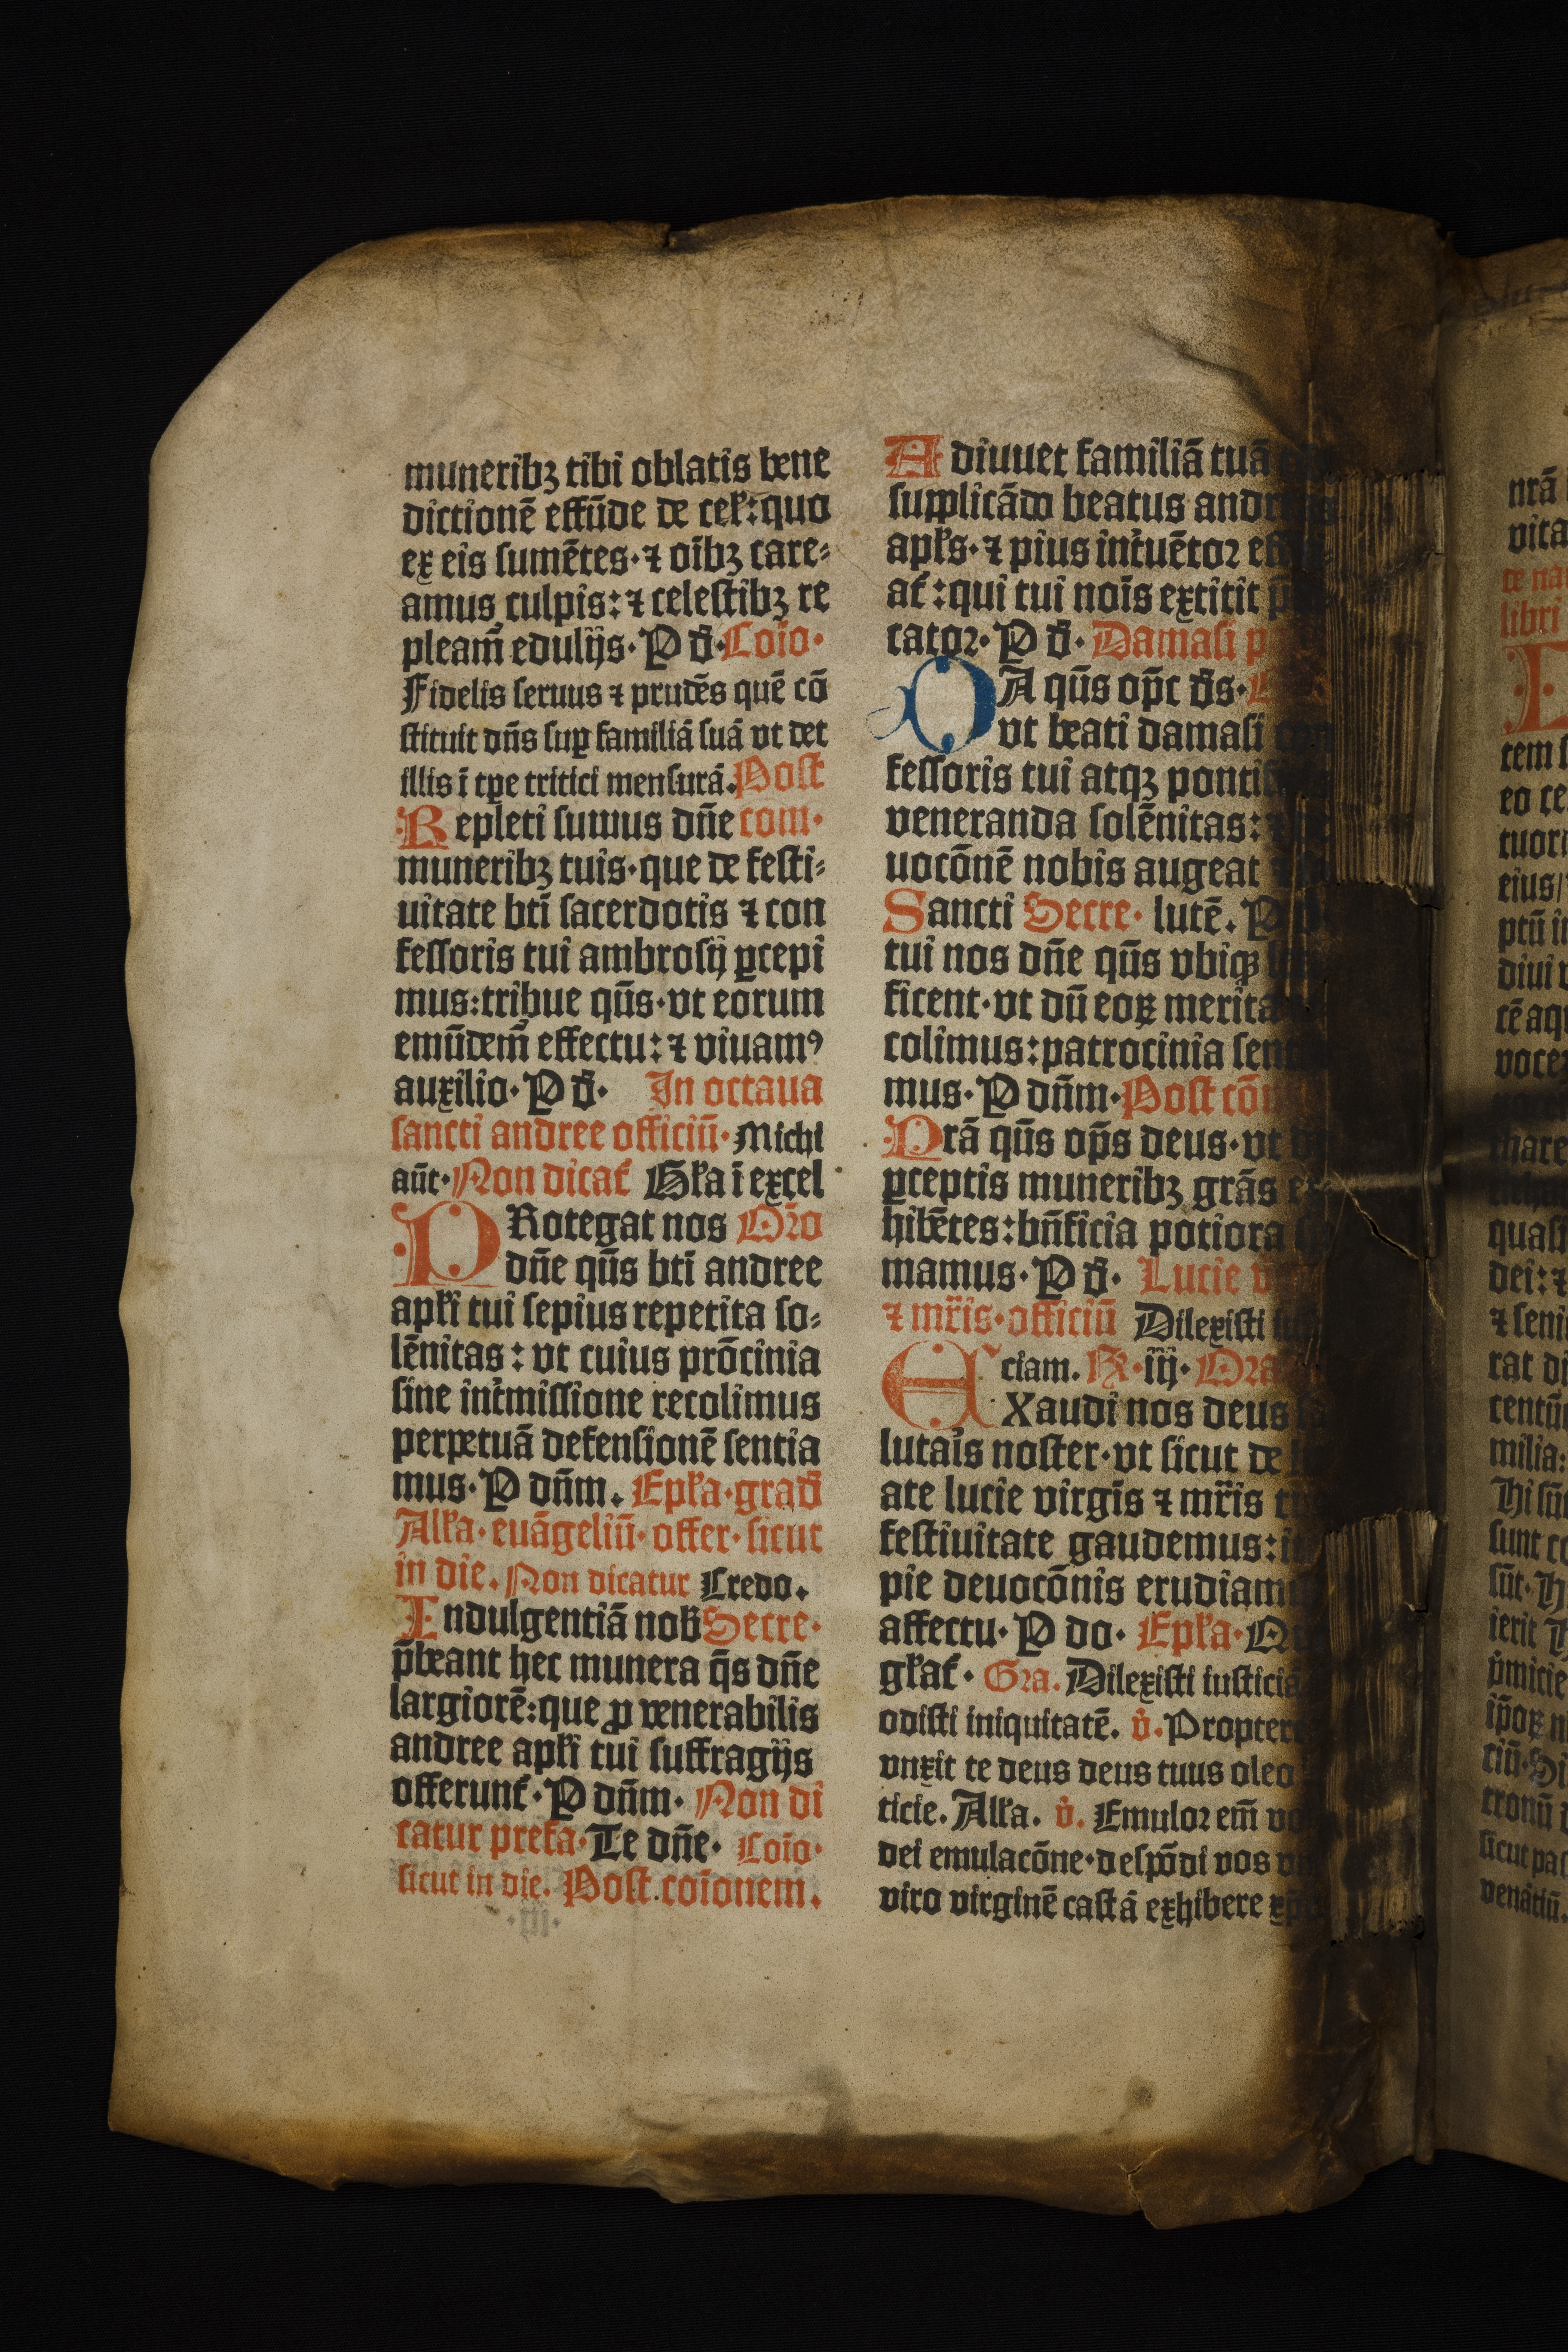 muneribꝫ tibi oblatis bene
dictionē effūde de cel̃:quo
ex eis sumētes·⁊ oībꝫ care⸗
amus culpis:⁊ celestibꝫ re
pleam̄ edulijs·P d̄·Coīo·
Fidelis seruus ⁊ prudēs quē cō
stituit dn̄s suꝑ familiā suā vt det
illis ī tꝑe tritici mensurā.Post
Repleti sumus dn̄e com·
muneribꝫ tuis·que de festi⸗
uitate bt̄i sacerdotis ⁊ con
fessoris tui ambrosij ꝑcepi
mus:tribue qūs·vt eorum
emūdem̄ effectu:⁊ viuamꝰ
auxilio·P d̄· In octaua
sancti andree officiū·Michi
aūt·Non dicat̃ Gl̃a ī excel
PRotegat nos Oīo
dn̄e qūs bt̄i andree
apl̃i tui sepius repetita so⸗
lēnitas:vt cuius prōcinia
sine int̃missione recolimus
perpetuā defensionē sentia
mus·P dn̄m. Epl̃a·grad̄
All̃a·euāgeliū·offer·sicut
in die.Non dicatur Credo.
Indulgentiā nob̄ Secre·
p̄beant hec munera q̄s dn̄e
largiorē:que ꝓ venerabilis
andree apl̃i tui suffragijs
offerunt̃·P dn̄m· Non di
catur prefa·Te dn̄e· Coīo·
sicut in die. Post coīonem.
Adiuuet familiā tuā
supplicādo beatus
apl̃s·⁊ pius int̃uētor
at̃:qui tui noīs extitit
cator·P d̄·Damasi
DA qūs op̄c d̄s·
vt beati damasi
fessoris tui atqꝫ
veneranda solēnitas:
uocōnē nobis augeat
Sancti Secre· lutē.P
tui nos dn̄e qūs vbiqꝫ
ficent·vt dū eoꝝ merita
colimus:patrocinia
mus·P dn̄m·Post
Prā qūs op̄s deus·vt
ꝑceptis muneribꝫ grās
hibētes:bn̄ficia potiora
mamus·P d̄· Lucie
⁊ mr̄is·officiū Dilexisti
ciam. R·iij·
EXaudi nos deus
lutaīs noster·vt sicut de
ate lucie virgīs ⁊ mr̄is
festiuitate gaudemus:
pie deuocōnis
affectu·P do· Epl̃a·
gl̃at̃· Gra.Dilexisti
odisti iniquitatē. v̇.
vnxit te deus deus tuus oleo
ticie.All̃a. v̇. Emulor em̄
dei emulacōne·despōdi vos
viro virginē castā exhibere
nrā
vita
libri
eo
eius
diui
dei:⁊
milia:
Hi
sunt
venātiū.